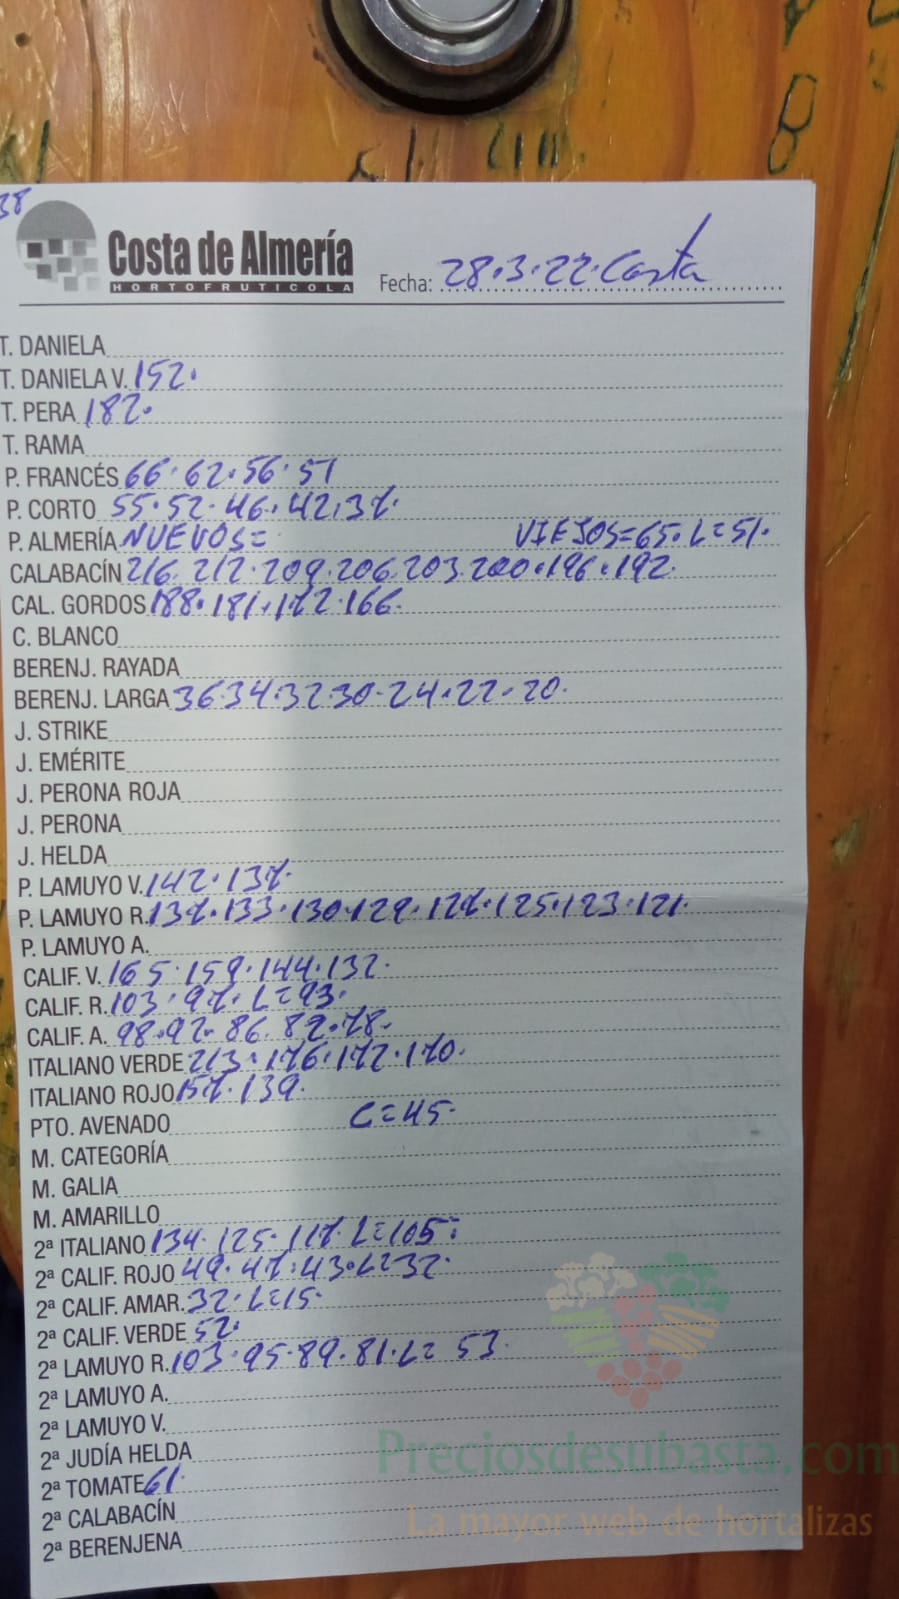 38
Costa de Almería
HORTOFRUTICOLA
Fecha: 28.3.22. Costa
T. DANIELA
T. DANIELA V. 152.
T. PERA 182.
T. RAMA
P. FRANCÉS 66. 62. 56. 51
P. CORTO 55. 52. 46. 42. 37.
P. ALMERÍA NUEVOS= VIEJOS=65. L=51.
CALABACÍN 216. 212. 209. 206. 203. 200. 196. 192.
CAL. GORDOS 188. 181. 172. 166.
C. BLANCO
BERENJ. RAYADA
BERENJ. LARGA 36.34.32.30.24.22.20.
J. STRIKE
J. EMÉRITE
J. PERONA ROJA
J. PERONA
J. HELDA
P. LAMUYO V. 142. 137.
P. LAMUYO R. 137. 133. 130. 129. 127. 125. 123. 121.
P. LAMUYO A.
CALIF. V. 165. 159. 144. 132.
CALIF. R. 103. 97. L=93.
CALIF. A. 98. 92. 86. 82. 78.
ITALIANO VERDE 213. 176. 172. 170.
ITALIANO ROJO 157. 139.
PTO. AVENADO C=45.
M. CATEGORÍA
M. GALIA
M. AMARILLO
2ª ITALIANO 134. 125. 117. L=105.
2ª CALIF. ROJO 49. 47. 43. L=32.
2ª CALIF. AMAR. 32. L=15.
2ª CALIF. VERDE 52.
2ª LAMUYO R. 103. 95. 89. 81. L= 53.
2ª LAMUYO A.
2ª LAMUYO V.
2ª JUDÍA HELDA
2ª TOMATE 61.
2ª CALABACÍN
2ª BERENJENA
Preciosdesubasta.com
La mayor web de hortalizas